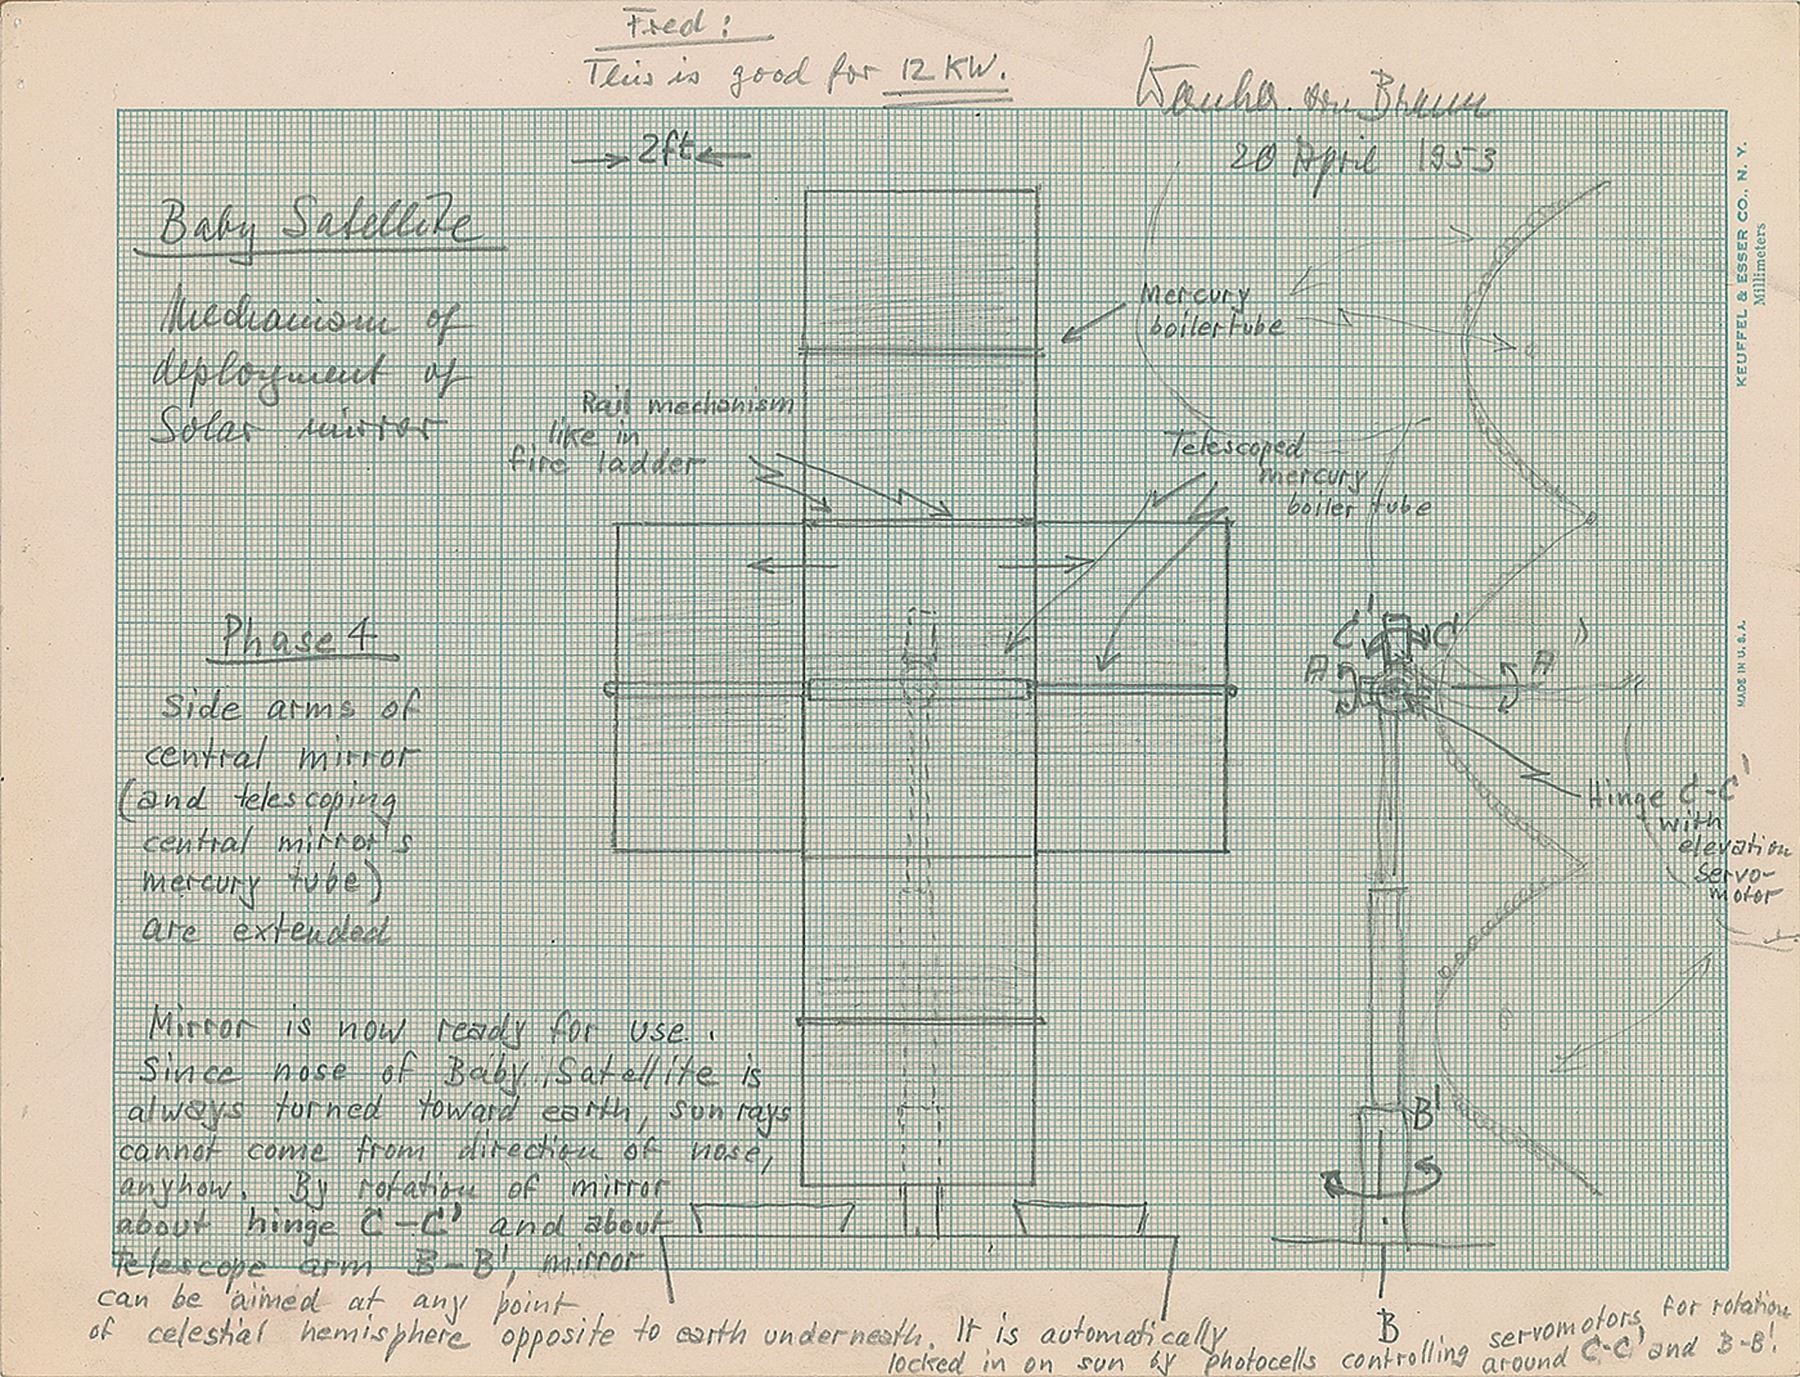 Fred:
This is good for 12 KW.
Wernher von Braun
20 April 1953
2ft
Baby Satellite
Mechanism of
deployment of
Solar mirror
Mercury
boiler tube
Rail mechanism
like in
fire ladder
Telescoped
mercury
boiler tube
Phase 4
Side arms of
central mirror
(and telescoping
central mirror's
mercury tube)
are extended
C' C
A A
Hinge C-C'
with
elevation
servo-
motor
B'
B
Mirror is now ready for use.
Since nose of Baby Satellite is
always turned toward earth, sun rays
cannot come from direction of nose,
anyhow. By rotation of mirror
about hinge C-C' and about
telescope arm B-B', mirror
can be aimed at any point
of celestial hemisphere opposite to earth underneath. It is automatically
locked in on sun by photocells controlling servomotors for rotation
around C-C' and B-B'.
KEUFFEL & ESSER CO., N. Y.
Millimeters
MADE IN U.S.A.